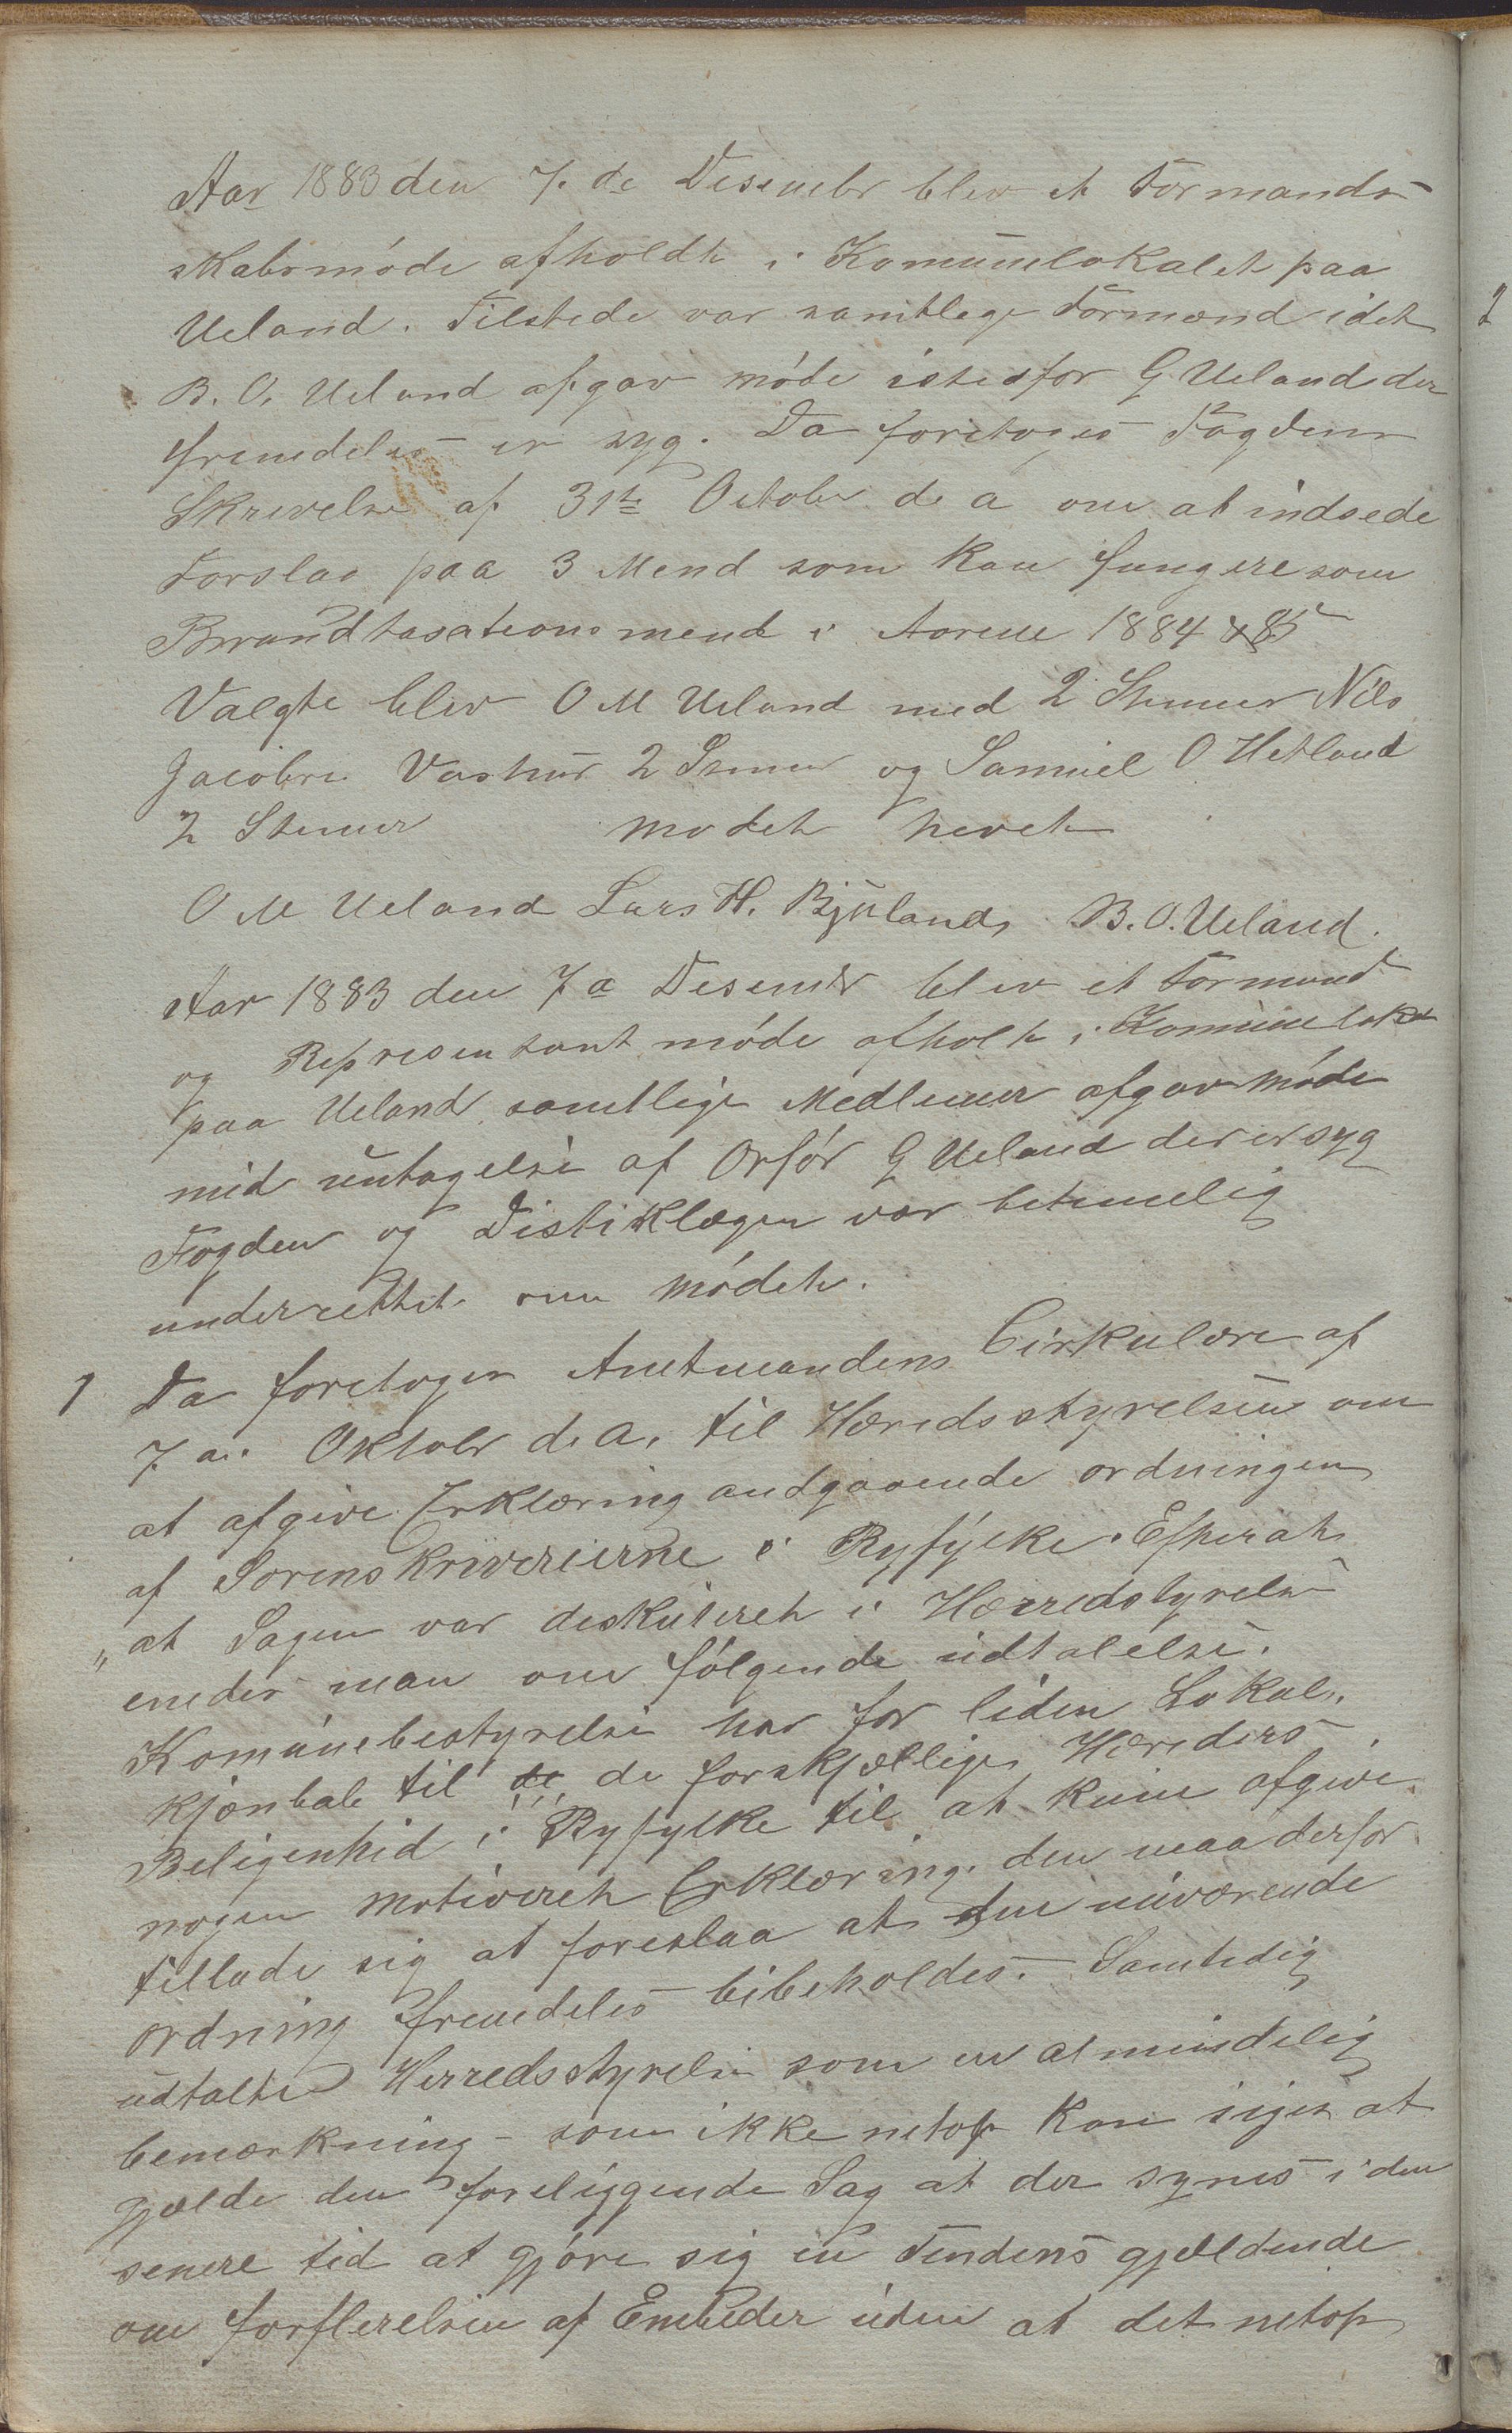 Aar 1883 den 7. de Desembr blev et Formands-
skabsmöde afholdt i Komunelokalet paa
Ueland. Tilstede var samtlege Formænd idet
B. O. Ueland afgav möde istedfor G Ueland der
fremdeles er syg. Da foretoges Fogdens
Skrivelse af 31te October d a om at indsede
Forslag paa 3 Mend som kan fungere som
Brandtaxationsmend i Aarene 1884 & 85
Valgte blev O M Ueland med 2 Stemer Nils
Jacobsen 2 Stemer og Samuel O Hetland
2 Stemer Modet hevet
O M Ueland Lars H. Bjuland, B. O. Ueland.
Aar 1883 den 7 a Desembr blev et Formand
og Representant möde afholt i Komunelokal
paa Ueland samtlige Medlemer afgav möde
med untagelse af Orför G Ueland der er syg
Fogden og Distiklægen var betimelig
underrettet om mödet.
1 Da foretoges Amtmandens Cirkulære af
7 a. Oktobr d. a. til Heredsstyrelsen om
at afgive Erklæring andgaaende ordningen
af Sorenskriverierne i Ryfylke. Efterat
" at Sagen var deskuteret i Herredstyrelse
enedes man om fölgende udtalelse.
Komunebestyrelse har for liden Lokal,
kjønbab til de de forskjællige Hereders
Beligenhed i Ryfylke til at kune afgive
nogen motiveret Erklæring. den maa derfor
tillade sig at foreslaa at den nuværende
ordning fremdeles bibeholdes. Samtedig
udtalte Herredsstyrelse som en almindelig
bemærkning - som ikke netop kan siges at
gjælde den foreliggende Sag at der synes i den
senere tid at gjöre sig en Tendens gjældende
om forflerelsen af Embeder uden at det netop